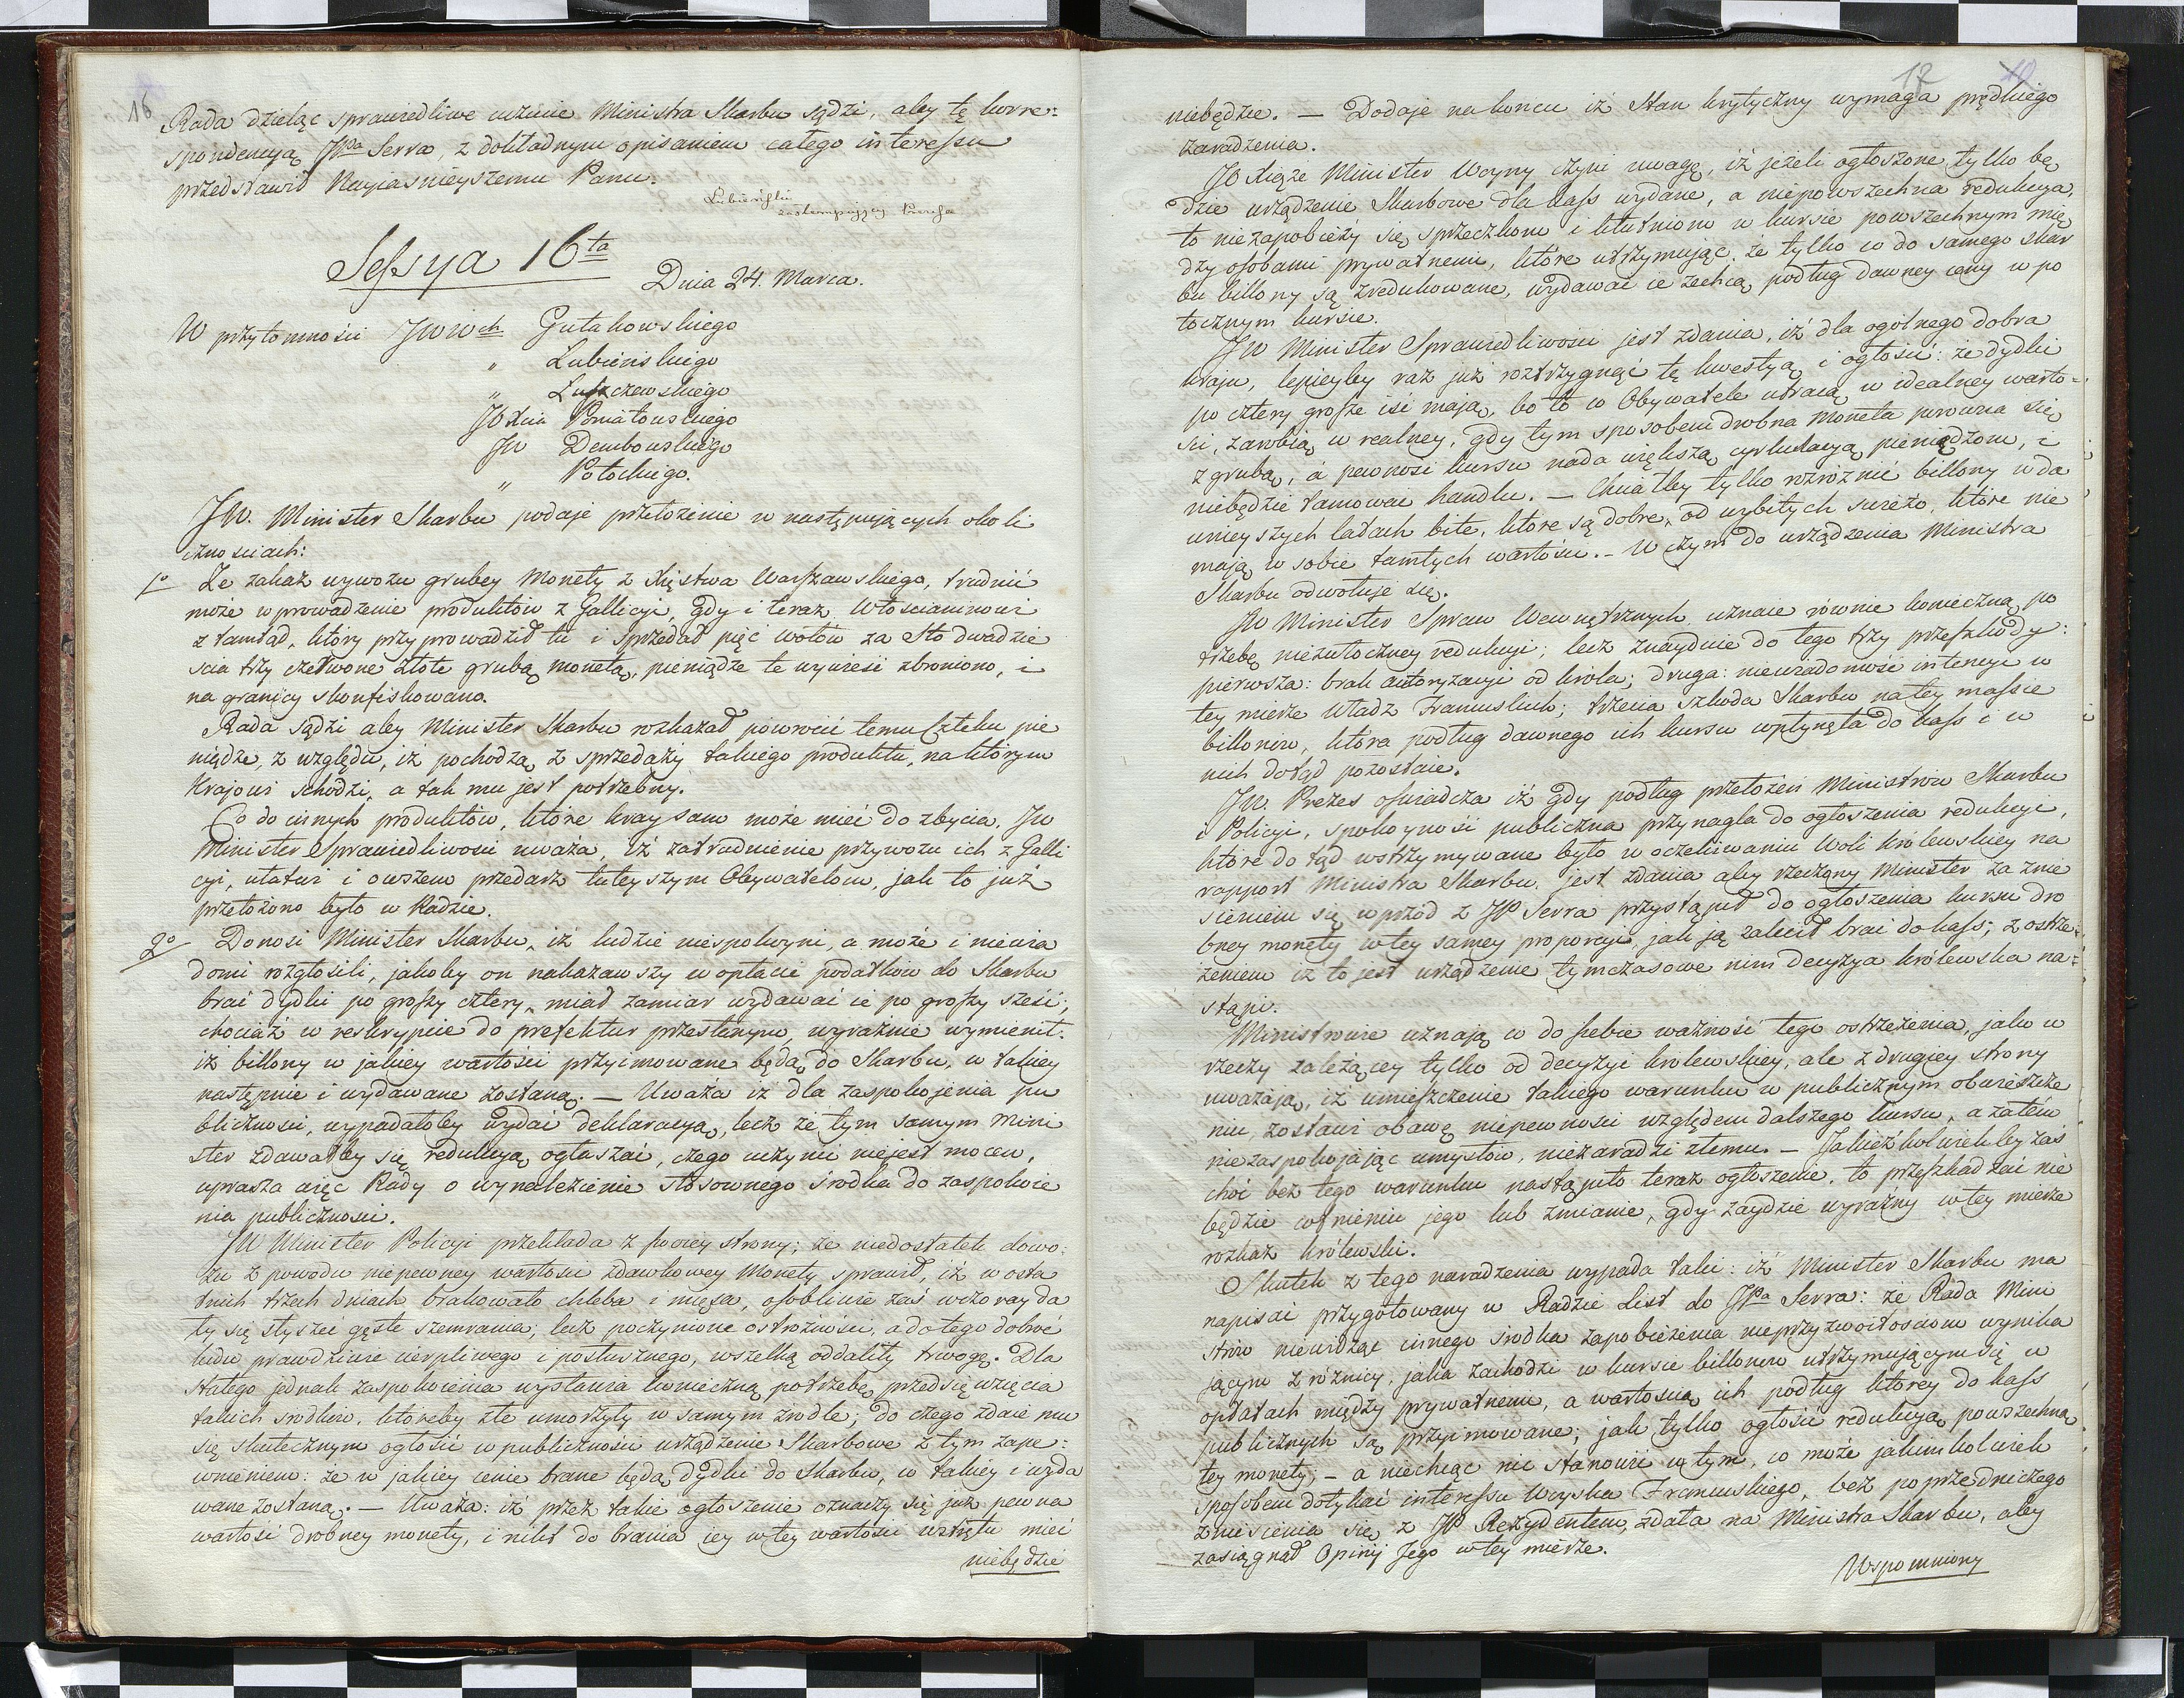 16
Rada dzieląc sprawiedliwe czucie Ministra Skarbu sądzi, aby tę korre:
spondencyą JPa Serra, z dokładnym opisaniem całego interessu
przedstawił Nayiasnieyszemu Panu.
Łubieński
zastempuiący Prezesa
Sessya 16ta
Dnia 24. Marca.
W przytomności JWWch Gutakowskiego
" Łubienskiego
" Łuszczewskiego
JO Xcia Poniatowskiego
JW Dembowskiego
" Potockiego.
JW. Minister Skarbu podaje przełożenie w następujących okoli
cznosciach:
1o Ze zakaz wywozu grubey Monety z Xięstwa Warszawskiego, trudnić
może wprowadzenie produktów z Gallicyi, gdy i teraz Włościaninowi
z tamtąd, który przyprowadził tu i sprzedał pięć wołów za Sto dwadzie
scia trzy czerwone złote grubą monetą, pieniądze te wywieść zbroniono, i
na granicy skonfiskowano.
Rada sądzi aby Minister Skarbu rozkazał powrócić temu Człeku pie
niądze, z względu, iż pochodzą z sprzedaży takiego produktu, na którym
Krajowi schodzi, a tak mu jest potrzebny.
Co do innych produktów, które kray sam może mieć do zbycia, JW
Minister Sprawiedliwosci uważa, iż zatrudnienie przywozu ich z Galli
cyi, ułatwi i owszem przedarz tuteyszym Obywatelom, jak to już
przełożono było w Radzie.
2o Donosi Minister Skarbu, iż ludzie niespokoyni, a może i niewia
domi rozgłosili, jakoby on nakazawszy w opłacie podatków do Skarbu
brać dydki po groszy cztery, miał zamiar wydawać ie po groszy sześć;
chociaż w reskrypcie do prefektur przesłanym, wyraźnie wymienił.
iż billony w jakiey wartości przyimowane będą do Skarbu, w takiey
następnie i wydawane zostaną. — Uważa iż dla zaspokojenia pu
bliczności, wypadałoby wydać deklaracyą, lecz że tym samym Mini
ster zdawałby się redukcyą ogłaszać, czego uczynić niejest mocen,
uprasza więc Rady o wynalezienie stosownego środka do zaspokoie
nia publicznosci.
JW Minister Policyi przekłada z swoiey strony; że niedostatek dowo:
zu z powodu niepewney wartosci zdawkowey Monety, sprawił, iż w osta
tnich trzech dniach brakowało chleba i mięsa, osobliwie zaś wczoray da
ły się słyszeć gęste szemrania; lecz poczynione ostrożności, a do tego dobroć
ludu prawdziwie cierpliwego i posłusznego, wszelką oddaliły trwogę. Dla
stałego jednak zaspokoienia wystawia konieczną potrzebę przedsięwzięcia
takich srodków, któreby złe umorzyły w samym zrodle; do czego zdaie mu
się skutecznym ogłosić w publiczności urządzenie Skarbowe z tym zape:
wnieniem: że w jakiey cenie brane będą dydki do Skarbu, w takiey i wyda
wane zostaną. — Uważa: iż przez takie ogłoszenie oznaczy się już pewna
wartość drobney monety, i nikt do brania iey w tey wartości wstrętu mieć
niebędzie
17
niebędzie. — Dodaje na koncu iż Stan krytyczny wymaga prędkiego
zaradzenia.
JO Xiąże Minister Woyny czyni uwagę, iż jeżeli ogłoszone tylko bę
dzie urządzenie Skarbowe dla kass wydane, a nie powszechna redukcya,
to niezapobieży się sprzeczkom i kłutniom w kursie powszechnym mię
dzy osobami prywatnemi, które utrzymując, że tylko co do samego skar
bu billony są zredukowane, wydawać ie zechcą podług dawney ceny w po
tocznym kursie.
JW Minister Sprawiedliwosci jest zdania, iż dla ogólnego dobra
kraju, lepieyby raz już rozstrzygnąć tę kwestyą i ogłosić: że dydki
po cztery grosze iść mają, bo to co Obywatele utracą w idealney warto-
sci, zarobią w realney, gdy tym sposobem drobna Moneta porowna się
z grubą, a pewnosć kursu nada większą cyrkulacyą pieniądzom, i
niebędzie tamować handlu. — Chciałby tylko rozróznić billony w da
wnieyszych latach bite, które są dobre, od wybitych swieżo, które nie
mają w sobie tamtych wartości. – W czym do urządzenia Ministra
Skarbu odwołuje się.
JW Minister Spraw Wewnętrznych uznaie równie konieczną po
trzebę niezwłoczney redukcyi; lecz znayduie do tego trzy przeszkody:
pierwsza: brak autoryzacyi od króla; druga: niewiadomość intencyi w
tey mierze Władz Francuskich; trzecia szkoda Skarbu na tey massie
billonów, która podług dawnego ich kursu wpłynęła do kass i w
nich dotąd pozostaie.
JW. Prezes oświadcza iż gdy podług przełożeń Ministrów Skarbu
i Policyi, spokoyność publiczna przynagla do ogłoszenia redukcyi,
które do tąd wstrzymywane było w oczekiwaniu Woli królewskiey na
rapport Ministra Skarbu, jest zdania aby rzeczony Minister za znie
sieniem się wprzód z JP Serra przystąpił do ogłoszenia kursu dro
bney monety w tey samey proporcyi, jak ją zalecił brać do kass; z ostrze-
żeniem iż to jest urządzenie tymczasowe nim decyzya królewska na=
stąpi.
Ministrowie uznają co do siebie ważność tego ostrzeżenia, jako w
rzeczy zależącey tylko od decyzyi królewskiey, ale z drugiey strony
uważają, iż umieszczenie takiego warunku w publicznym obwieszcze
niu, zostawi obawę niepewności względem dalszego kursu, a zatém
niezaspokojając umysłów, niezaradzi złemu. — Jakieżkolwiekby zaś
choć bez tego warunku nastąpiło teraz ogłoszenie, to przeszkadzać nie
będzie cofnieniu jego lub zmianie, gdy zaydzie wyraźny w tey mierze
rozkaz królewski.
Skutek z tego naradzenia wypada taki: iż Minister Skarbu ma
napisać przygotowany w Radzie List do JPa Serra: że Rada Mini
strów niewidząc innego środka zapobieżenia nieprzyzwoitosciom wynika
jącym z róznicy, jaka zachodzi w kursie billonów utrzymującym się w
opłatach między prywatnemi, a wartoscią ich podług którey do kass
publicznych są przyimowane; jak tylko ogłosić redukcyą powszechną
tey monety; – a niechcąc nic stanowić w tym, co może jakimkolwiek
sposobem dotykać interessu Woyska Francuskiego, bez poprzedniczego
zniesienia się z JP Rezydentem, zdała na Ministra Skarbu, aby
zasiągnął Opinij Jego w tey mierze.
Wspomniony